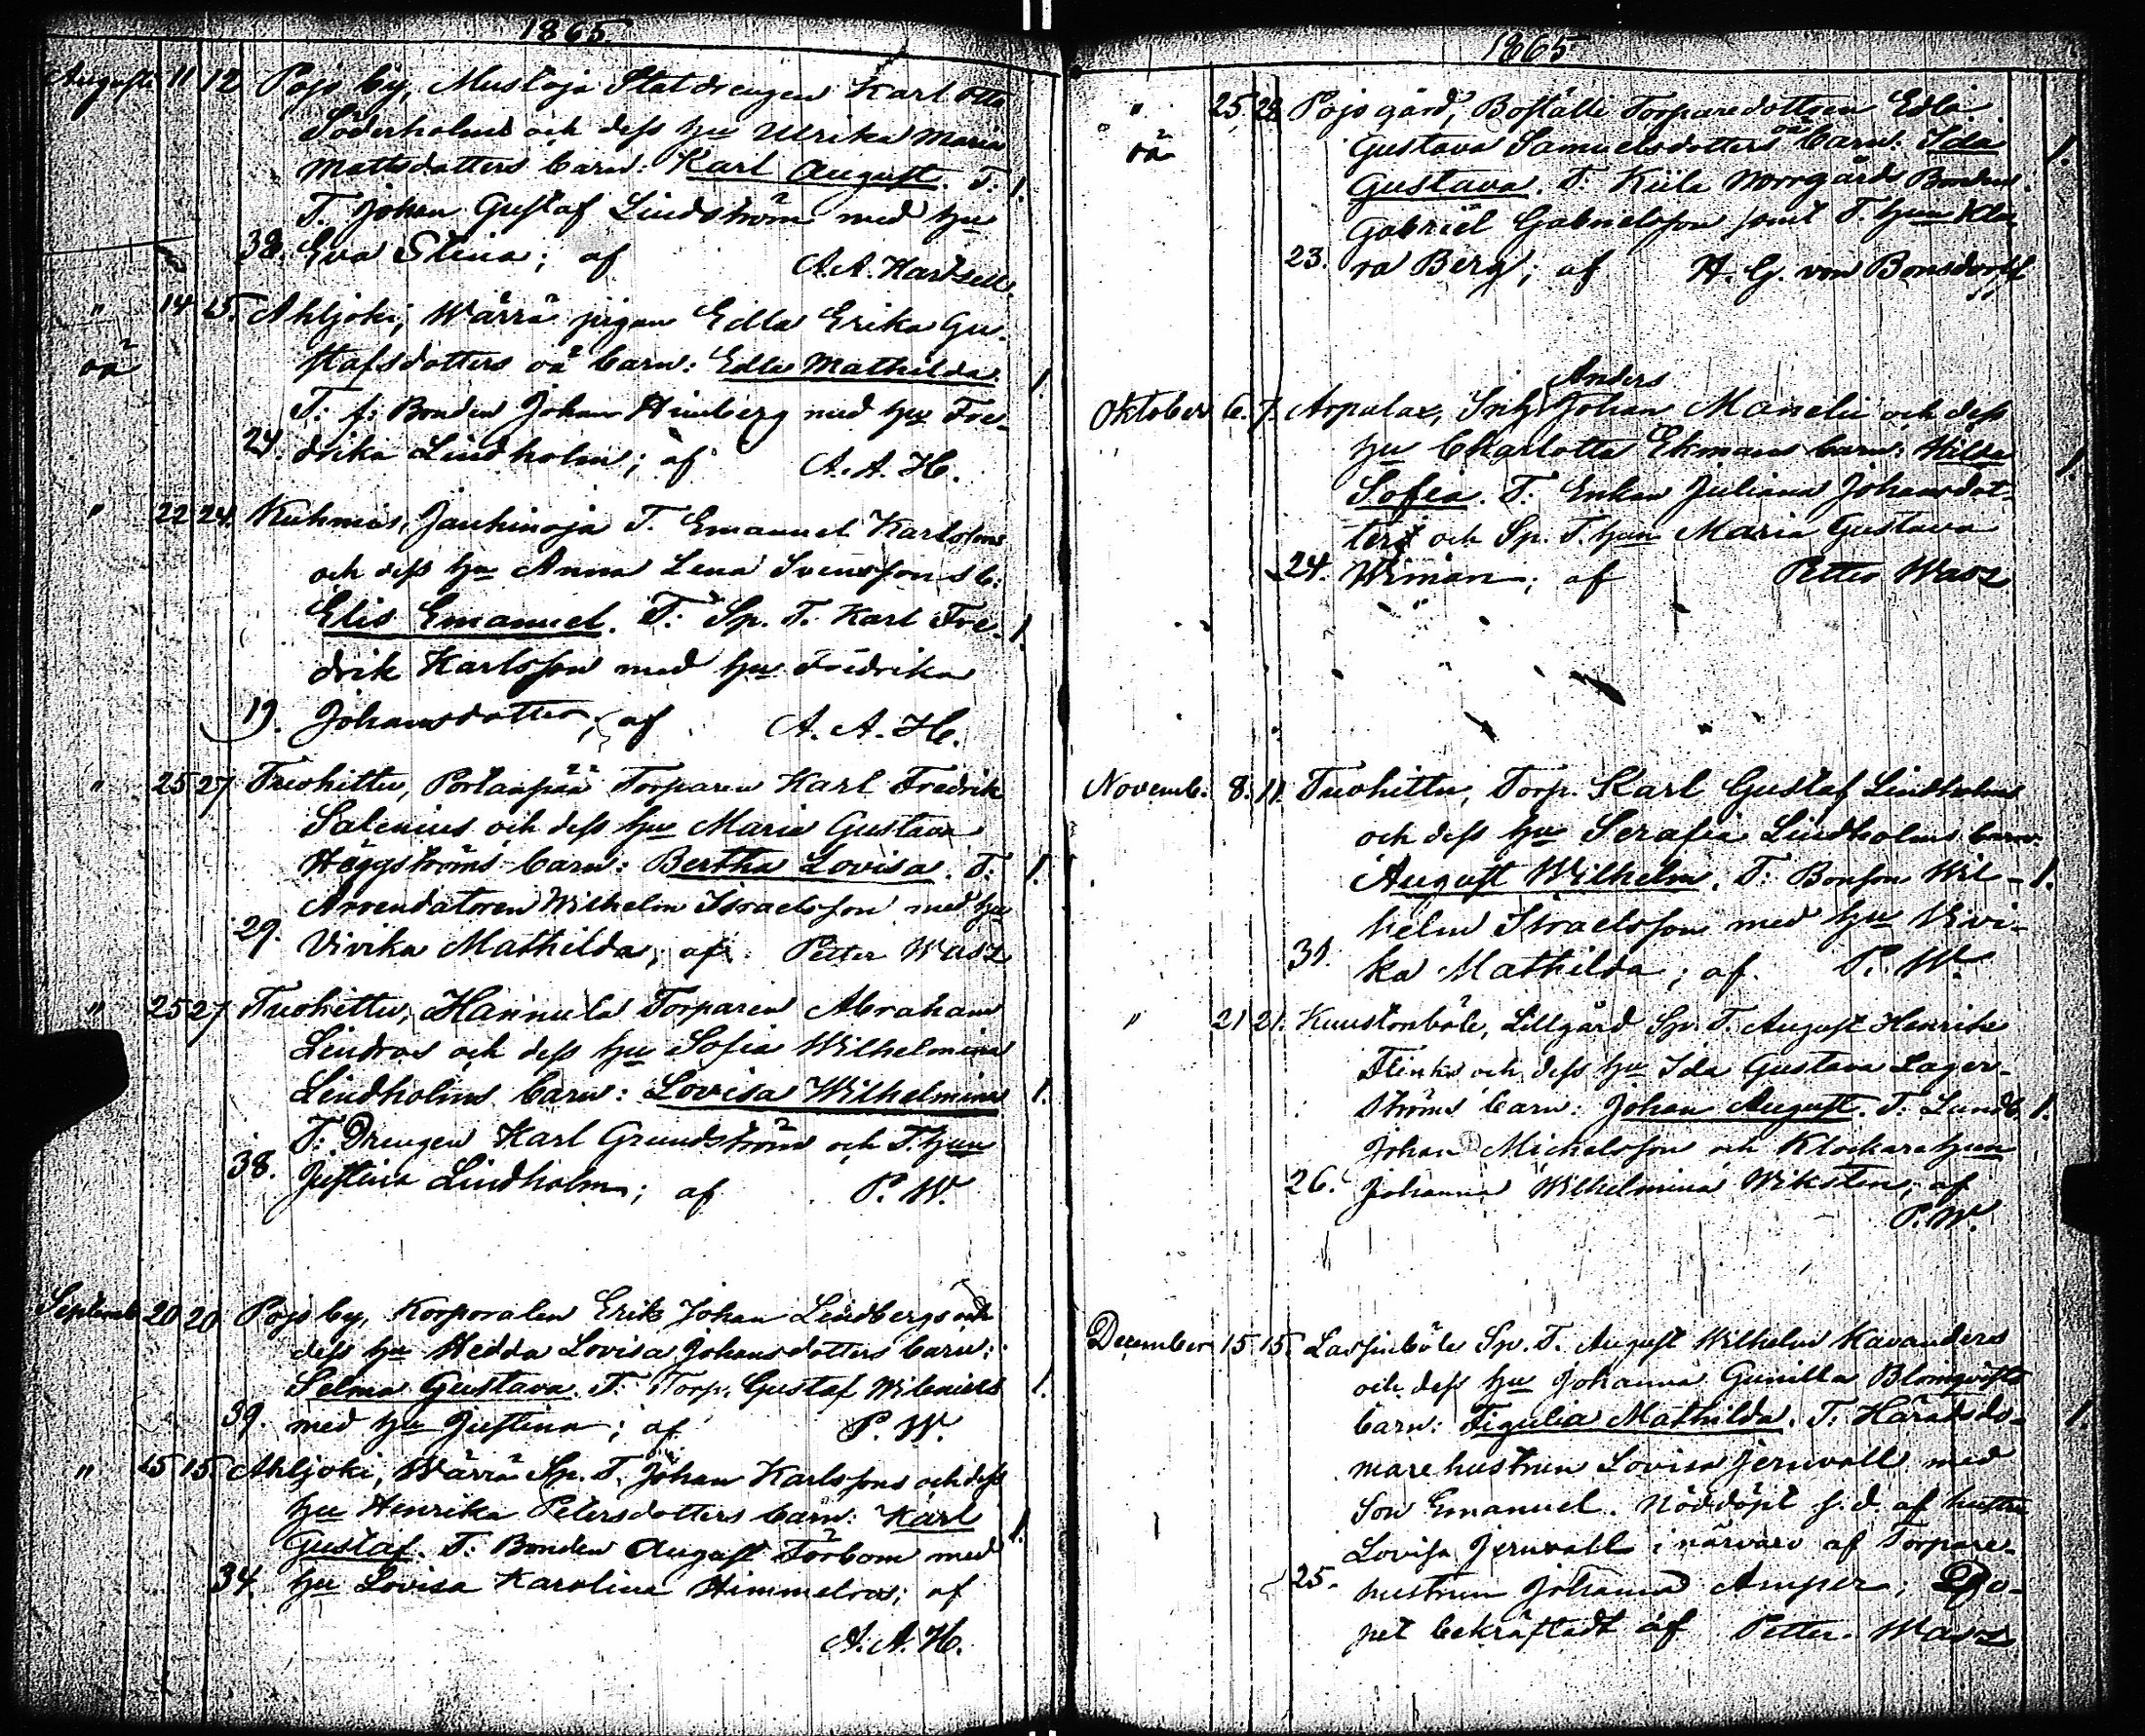 1865.
Augusti 11 12 Pojo by, Mustoja Statdrengen Karl Otto
Söderholms och dess hu Ulrika Maria
Mattsdotters barn: Karl August. T: 1.
T. Johan Gustaf Lindström med hu
38. Eva Stina; af A. A. Hartzell.
" 14 15. Ahljoki, Wärrä pigan Edla Erika Gu-
oä stafsdotters oä barn: Edla Mathilda. 1.
T: f: Bonden Johan Himberg med hu Fre-
24. drika Lindholm; af A. A. H.
" 22 24. Kuhmus, Jauhinoja T. Emanuel Karlssons
och dess hu Anna Lena Svenssons b:
Elis Emanuel. T: Sp. T. Karl Fre- 1.
drik Karlsson med hu Fredrika
19. Johansdotter; af A. A. H.
" 25 27 Tuohittu, Portanpää Torparen Karl Fredrik
Salenius och dess hu Maria Gustava
Häggströms barn: Bertha Lovisa. T: 1.
Arrendatoren Wilhelm Israelsson med hu
29. Vivika Mathilda; af Petter Wasz
" 25 27 Tuohittu, Hannula Torparen Abraham
Lindros och dess hu Sofia Wilhelmina
Lindholms barn: Lovisa Wilhelmina 1.
T: Drengen Karl Grundström och T. hun
38. Justina Lindholm; af P. W.
Septemb. 20 20 Pojo by, Korporalen Erik Johan Lindbergs och
dess hu Hedda Lovisa Johansdotters barn:
Selma Gustava. T: Torp. Gustaf Wilenius 1.
39. med hu Justina; af P. W.
" 15 15. Ahljoki, Wärrä Sp. T. Johan Karlssons och dess
hu Henrika Petersdotters barn: Karl
Gustaf. T: Bonden August Törbom med 1.
34. hu Lovisa Karolina Himmelros; af
A. A. H.
1865.
" 25 28 Pojo gård, Boställe Torparedottren Edla
oä Gustava Samuelsdotters oä barn: Ida 1.
Gustava. T: Kiila Norrgård Bonden
Gabriel Gabrielsson samt T. hun Kla-
23. ra Berg; af H. G. von Bonsdorff
Anders
Oktober 6. 7. Arpalax, Inh. Johan Manelii och dess
hu Charlotta Ekmans barn: Hilda 1.
Sofia. T: Enkan Juliana Johansdot-
ter och Sp. T. hun Maria Gustava
24. Wiman; af Petter Wasz
Novemb. 8. 11. Tuohittu, Torp. Karl Gustaf Lindholms
och dess hu Serafia Lindholms barn:
August Wilhelm. T: Bonson Wil- 1.
helm Israelsson med hu Vivi-
31. ka Mathilda; af P. W.
" 21 21. Kuustonböle, Lillgård Sp. T. August Henriks
Flinks och dess hu Ida Gustava Lager-
ströms barn: Johan August. T: Lundb. 1.
Johan Michelsson och Klockarehun
26. Johanna Wilhelmina Wiksten; af
P. W.
December 15 15. Lassinböle Sp. T. August Wilhelm Kavanders
och dess hu Johanna Gunilla Blomqvists
barn: Figulia Mathilda. T: Härads do- 1.
mare hustrun Lovisa Jernvall med
Son Emanuel. Nöddöpt s. d. af hustru
Lovisa Jernvall i närvaro af Torpare-
25. hustrun Johanna Amper; Do-
pet bekräftadt af Petter Wasz